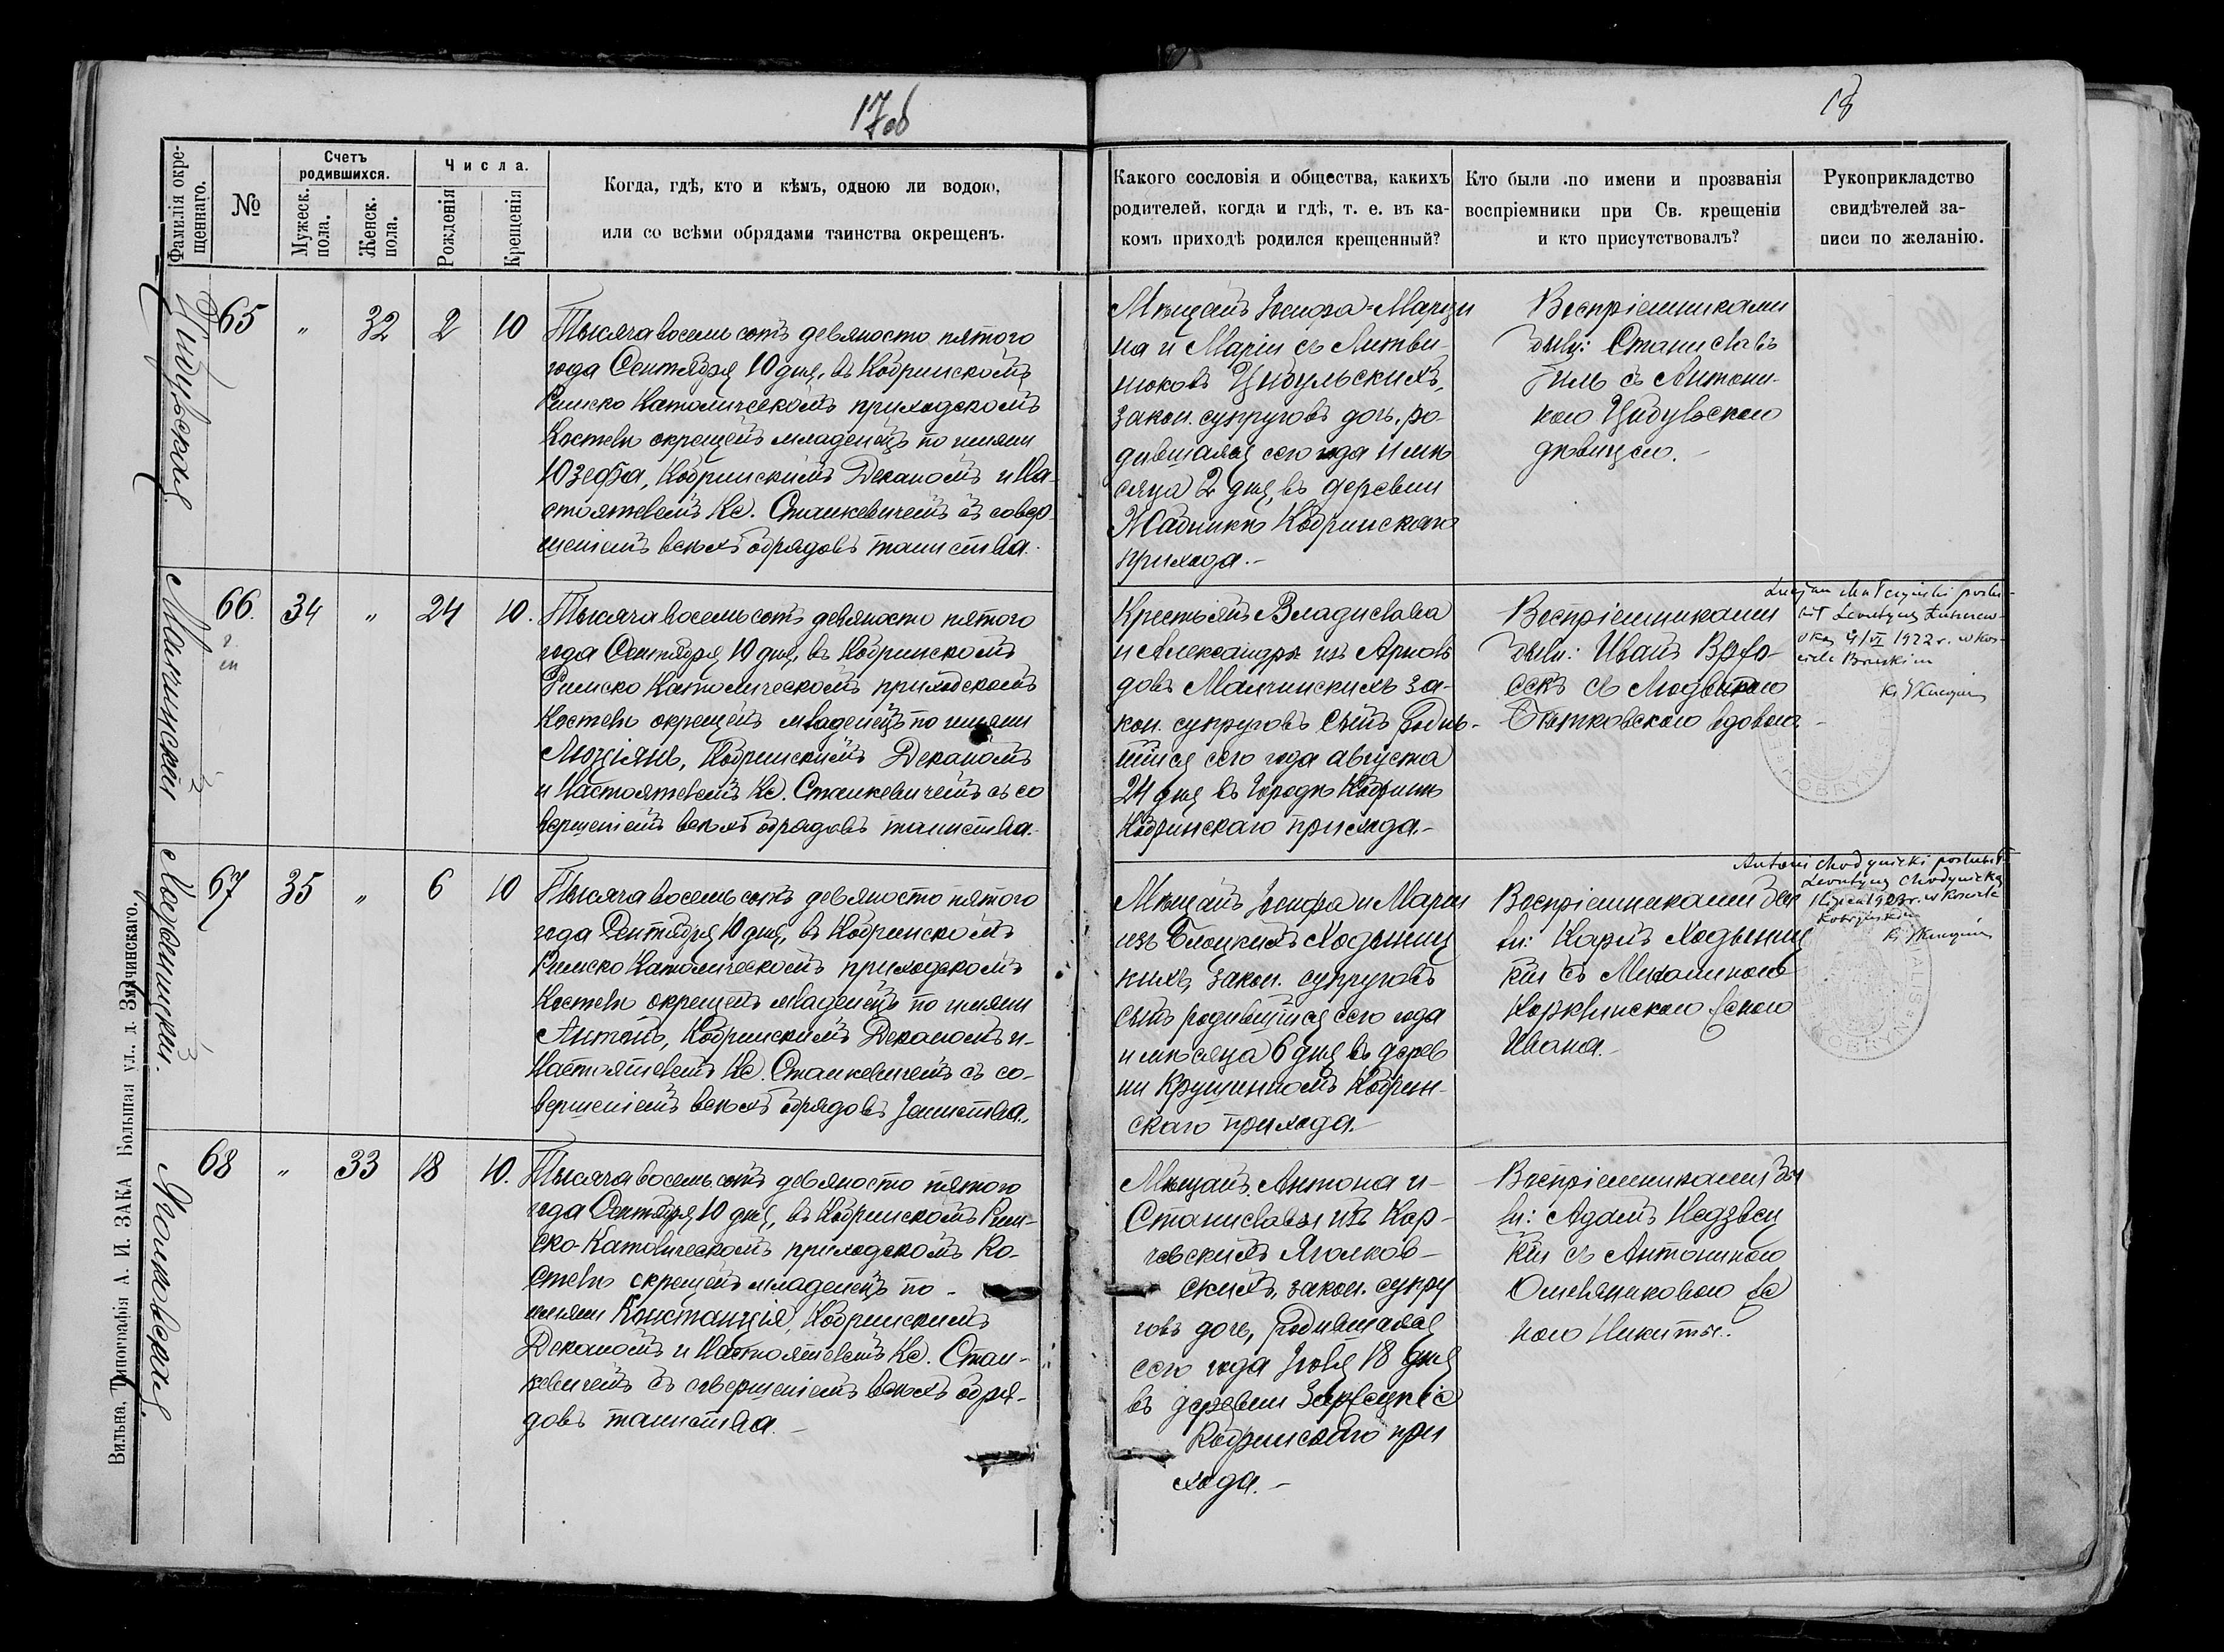 17об
18
Фамилія окре-
щеннаго.
№
Счетъ
родившихся.
Мужеск.
пола.
Женск.
пола.
Числа.
Рожденія
Крещенія
Когда, гдѣ, кто и кѣмъ, одною ли водою,
или со всѣми обрядами таинства окрещенъ.
Какого сословія и общества, какихъ
родителей, когда и гдѣ, т. е. въ ка-
комъ приходѣ родился крещенный?
Кто были по имени и прозванія
воспріемники при Св. крещеніи
и кто присутствовалъ?
Рукоприкладство
свидѣтелей за-
писи по желанію.
Цыбульская
65 " 32 2 10
Тысяча восемьсотъ девяносто пятого
года Сентября 10 дня, въ Кобринскомъ
Римско Католическомъ приходскомъ
Костелѣ окрещенъ младенецъ по имени
Юзефа, Кобринскимъ Деканомъ и На-
стоятелемъ Кс. Станкевичемъ съ совер-
шеніемъ всѣхъ обрядовъ таинства.
Мѣщанъ Іосифа-Марци
на и Маріи съ Литви-
нюковъ Цыбульскихъ,
закон. супруговъ дочь, ро-
дившаяся сего года и мѣ
сяца 2 дня, въ деревни
Кобринскаго
прихода.-
Воспріемниками
были: Станиславъ
съ Антони-
ною Цыбульскою
дѣвицею.-
Малчинскій
66. 34 " 24 10.
Тысяча восемьсотъ девяносто пятого
года Сентября 10 дня, въ Кобринскомъ
Римско Католическомъ приходскомъ
Костелѣ окрещенъ младенецъ по имени
Люціянъ, Кобринскимъ Деканомъ
и Настоятелемъ Кс. Станкевичемъ съ со
вершеніемъ всѣхъ обрядовъ таинства.
Крестьянъ Владислава
и Александры изъ
довъ Малчинскихъ за-
кон. супруговъ сынъ родив-
шійся сего года августа
24 дня въ городѣ Кобринѣ
Кобринскаго прихода.-
Воспріемниками
были: Иванъ
съ
вдовою.-
1922 r. w koś-
ciele
Ходыницкій.
67 35 " 6 10
Тысяча восемьсотъ девяносто пятого
года Сентября 10 дня, въ Кобринскомъ
Римско Католическомъ приходскомъ
Костелѣ окрещенъ младенецъ по имени
Антонъ, Кобринскимъ Деканомъ и-
Настоятелемъ Кс. Станкевичемъ съ со-
вершеніемъ всѣхъ обрядовъ таинства.
Мѣщанъ Іосифа и Маріи
изъ Ходыниц
кихъ, закон. супруговъ
сынъ родившійся сего года
и мѣсяца 6 дня въ дерев
ни Кобрин-
скаго прихода.-
Воспріемниками бы
ли: Ходыниц
кій съ Михалиною
женою
Ивана.-
Antoni Chodynicki poślubił
Leontynę Chodynicką
w Kościele
Kobryńskim
Яголковская.
68 " 33 18 10.
Тысяча восемьсотъ девяносто пятого
года Сентября 10 дня, въ Кобринскомъ Рим-
ско-Католическомъ приходскомъ Ко-
стелѣ окрещенъ младенецъ по -
имени Констанція, Кобринскимъ
Деканомъ и Настоятелемъ Кс. Стан-
кевичемъ съ совершеніемъ всѣхъ обря-
довъ таинства.-
Мѣщанъ Антона и-
Станиславы изъ Кор-
чевскихъ Яголков-
скихъ, закон. супру
говъ дочь, родившаяся
сего года Іюля 18 дня
въ деревни
Кобринскаго при
хода.-
Воспріемниками бы
ли: Адамъ Недзвец
кій съ Антониною
же
ною Никиты.-
Вильна, Типографія А. И. ЗАКА Большая ул., д. Здачинскаго.